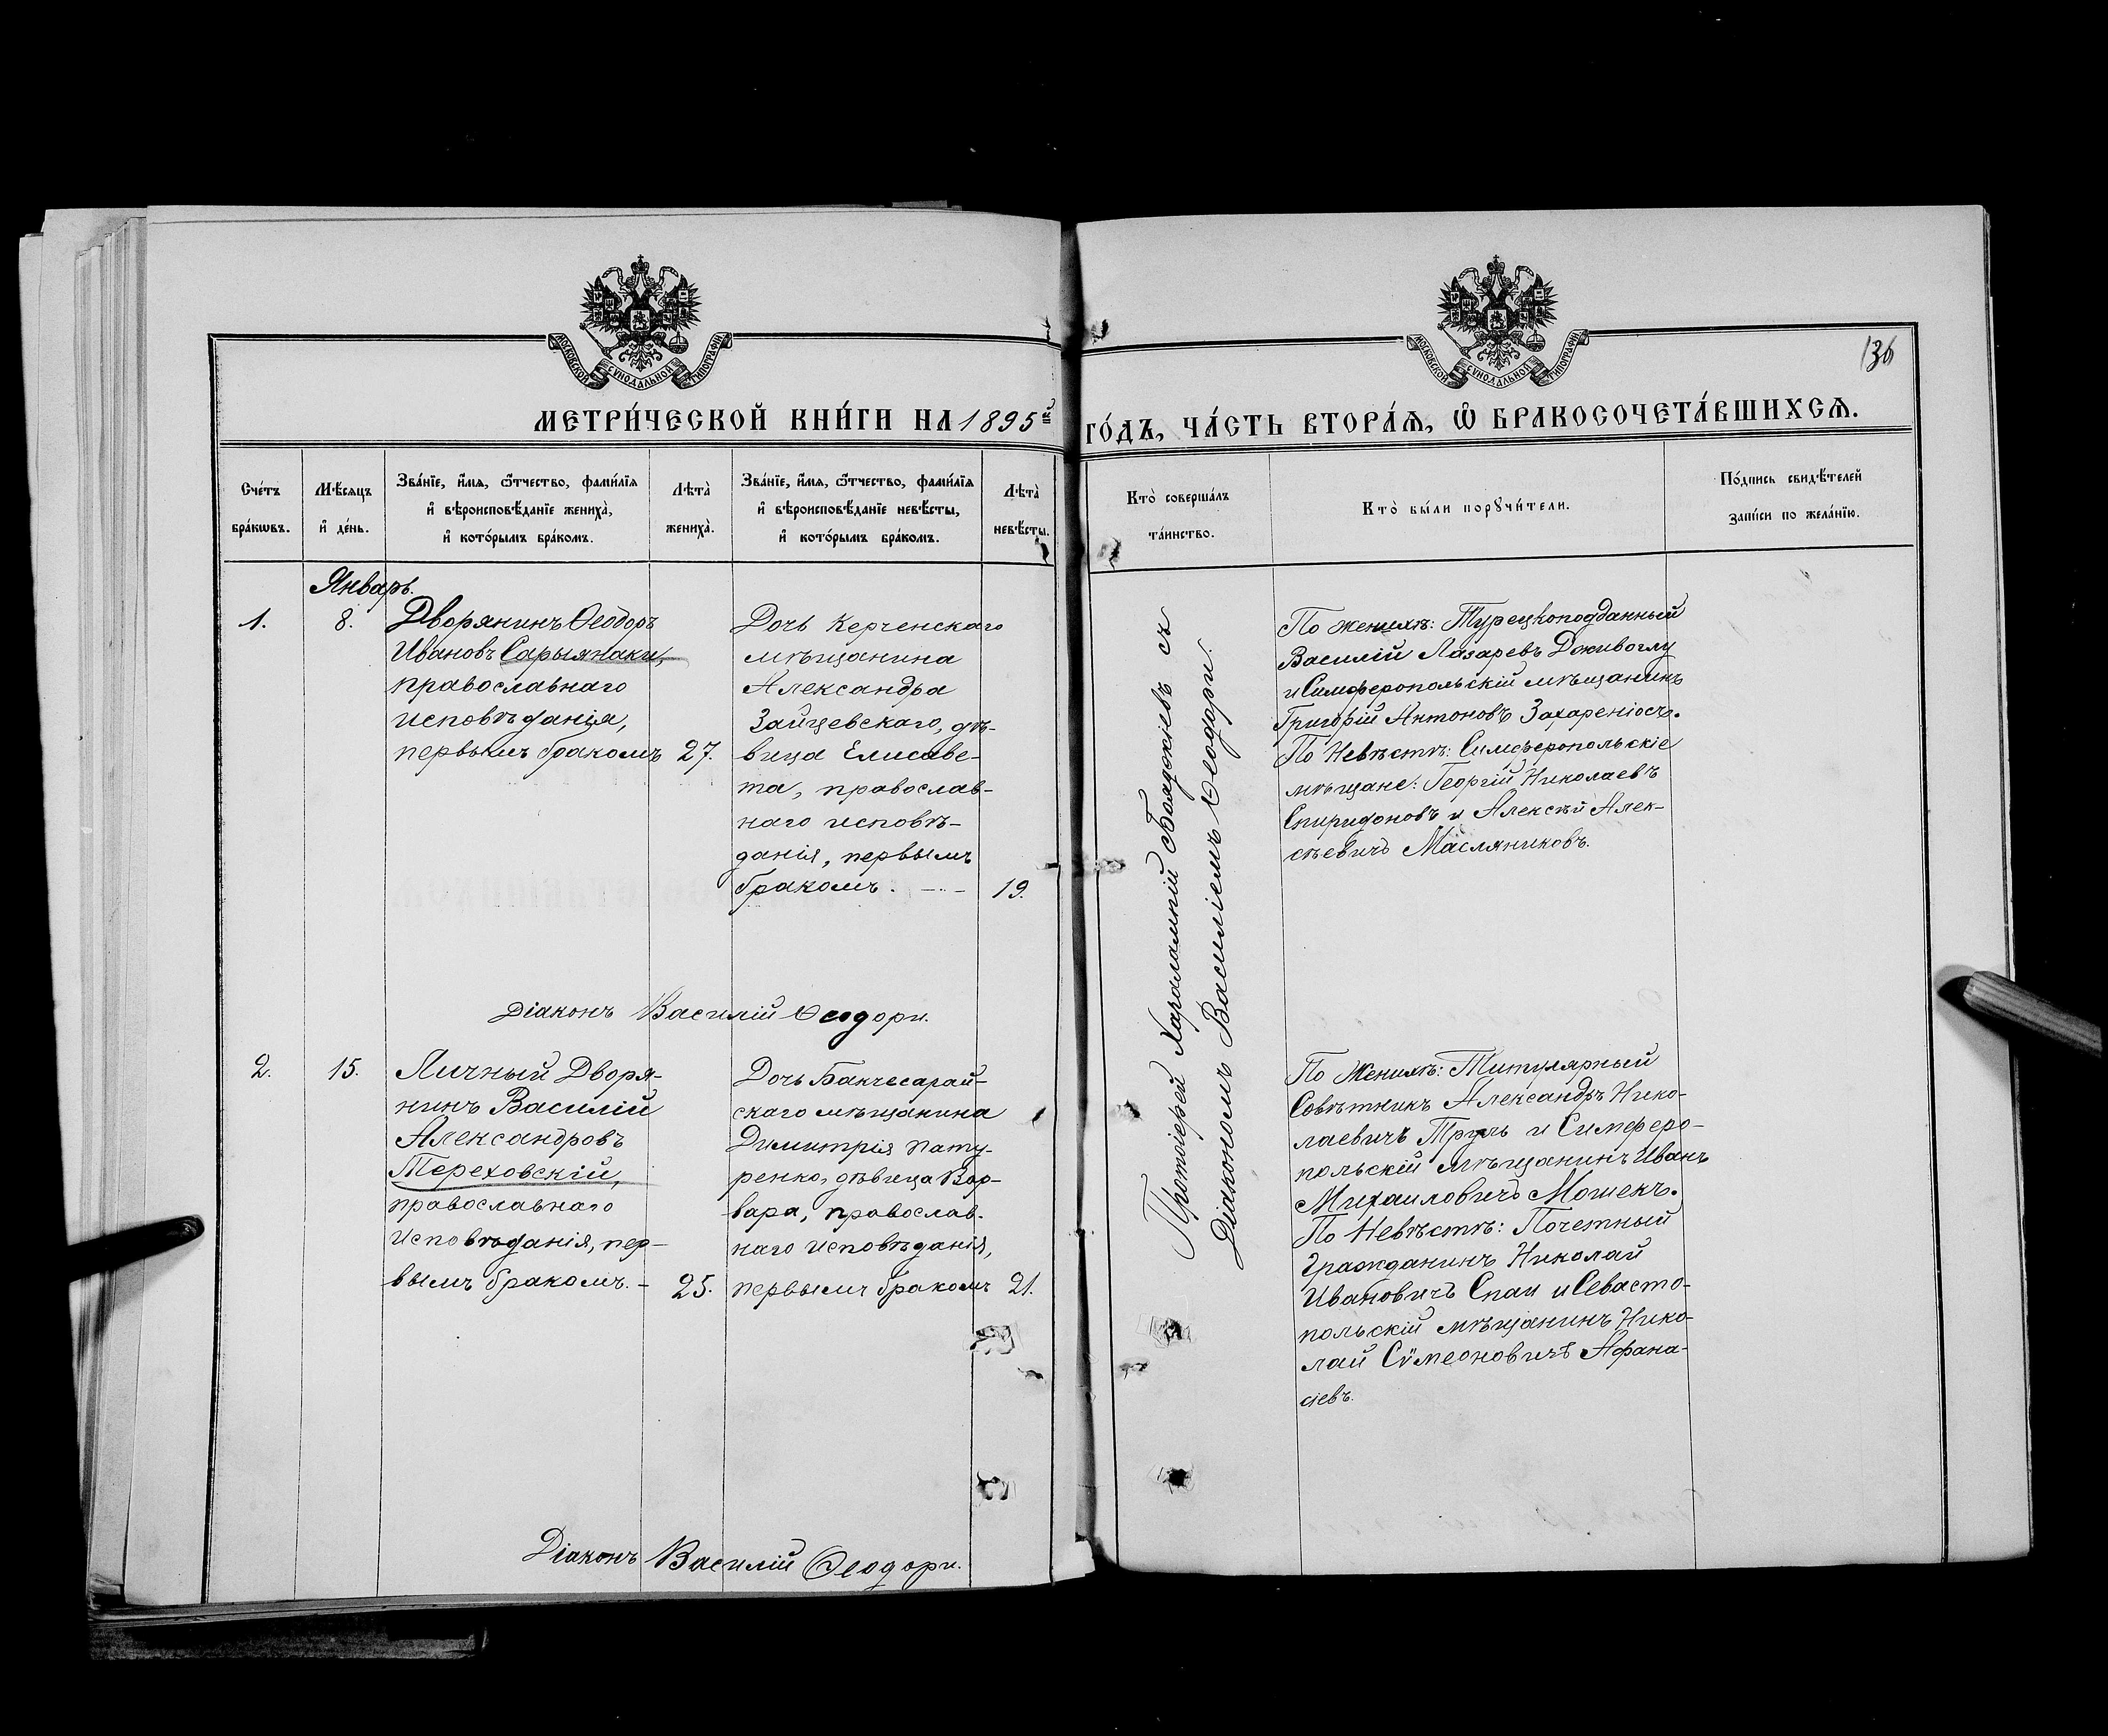 МОСКОВСКОЙ СѴНОДАЛЬНОЙ ТИПОГРАФІИ
МОСКОВСКОЙ СѴНОДАЛЬНОЙ ТИПОГРАФІИ
136
МЕТРИ́ЧЕСКОЙ КНИ́ГИ НА 1895й ГО́ДЪ, ЧА́СТЬ ВТОРА́Ѧ, Ѽ БРАКОСОЧЕТА́ВШИХСѦ.
Сче́тъ бра́кѡвъ.
Мѣ́сяцъ и де́нь.
Зва́нїе, и́мѧ, ѻ҆́тчество, фами́лїя
и вѣроисповѣ́данїе жениха̀,
и кото́рымъ бра́комъ.
Лѣта̀ жениха̀.
Зва́нїе, и́мѧ, ѻ҆́тчество, фами́лїя
и вѣроисповѣ́данїе невѣ́сты,
и кото́рымъ бра́комъ.
Лѣта̀ невѣ́сты.
Кто̀ соверша́лъ
та́инство.
Кто̀ бы́ли порꙋчи́тели.
По́дпись свидѣ́телей
за́писи по жела́нїю.
Январь.
1.
8.
Дворянинъ Ѳеодоръ
Ивановъ Сарыянаки,
православнаго
исповѣданія,
первымъ бракомъ
27.
Дочь Керченскаго
мѣщанина
Александра
Зайцевскаго, дѣ-
вица Елисаве-
та, православ-
наго исповѣ-
данія, первымъ
бракомъ.
19.
Протоіерей Харалампій Бояджіевъ съ
Діакономъ Василіемъ Ѳеодори.
По женихѣ: Турецкоподданный
Василій Лазаревъ Доживоглу
и Симферопольскій мѣщанинъ
Григорій Антоновъ Захареніосъ.
По Невѣстѣ: Симферопольскіе
мѣщане: Георгій Николаевъ
Спиридоновъ и Алексѣй Алек-
сѣевичъ Масляниковъ.
Діаконъ Василій Ѳеодори.
2.
15.
Личный Дворя-
нинъ Василій
Александровъ
Тереховскій,
православнаго
исповѣданія, пер-
вымъ бракомъ. -
25.
Дочь Бахчесарай-
скаго мѣщанина
Димитрія Пату-
ренко, дѣвица Вар-
вара, православ-
наго исповѣданія,
первымъ бракомъ
21.
По Женихѣ: Титулярный
Совѣтникъ Александръ Нико-
лаевичъ Труль и Симферо-
польскій мѣщанинъ Иванъ
Михаиловичъ Мошекъ.
По Невѣстѣ: Почетный
Гражданинъ Николай
Ивановичъ Спаи и Севасто-
польскій мѣщанинъ Нико-
лай Сѵмеоновичъ Афана-
сіевъ.
Діаконъ Василій Ѳеодори.